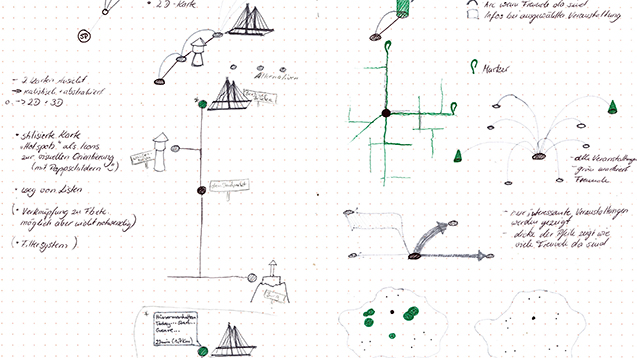 3D
• 2D-Karte
Alternativen
- 2 Karten Ansicht
→ realistisch + abstrahiert
→ 2D + 3D
• stilisierte Karte
"Hotspots" als Icons
zur visuellen Orientierung
(mit Pappschildern ☺)
• weg von Listen
(• Verknüpfung zu Flotte
möglich aber nicht notwendig)
(• Filtersystem)
Arc wenn Freunde da sind
Infos bei ausgewählter Veranstaltung
Marker
- alle Veranstaltungen
- grün markiert
Freunde
- nur interessante Veranstaltungen
werden gezeigt
- dicke der Pfeile zeigt wie
viele Freunde da sind